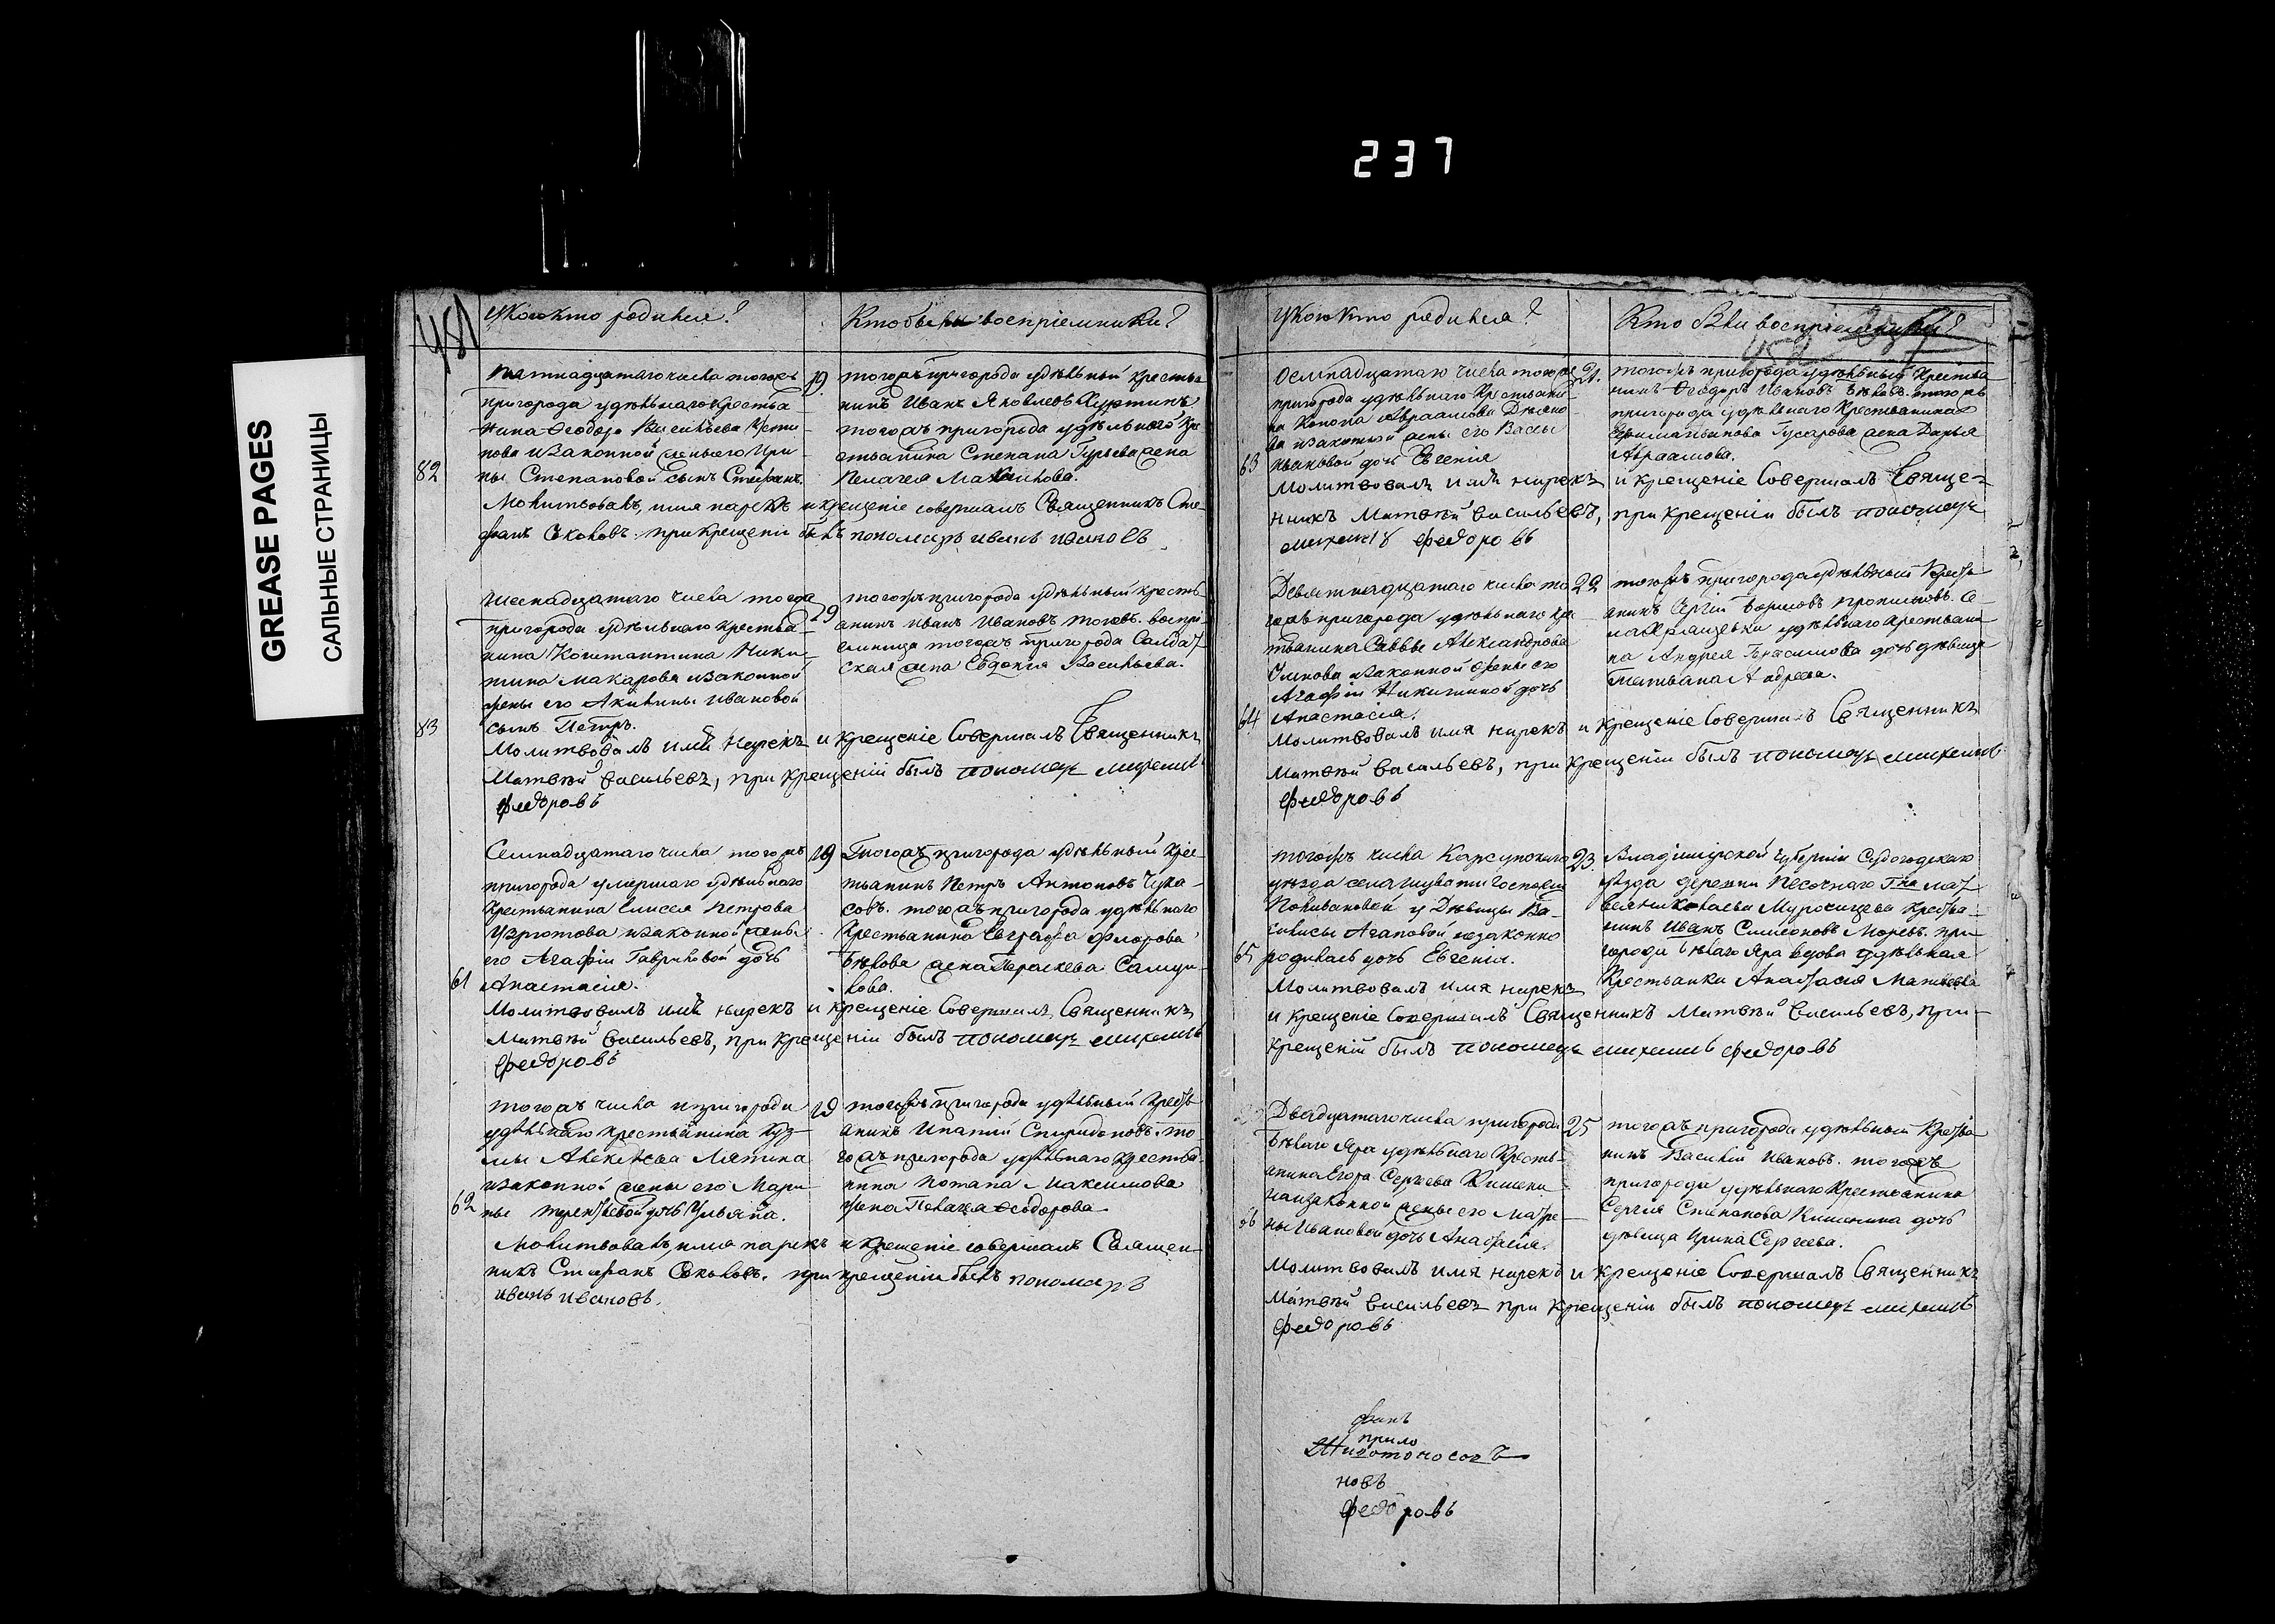 237
GREASE PAGES
САЛЬНЫЕ СТРАНИЦЫ
451
У Кого кто родился?
Кто были восприемники?
Пятнадцатаго числа тогожъ
пригорода удѣльнаго крестья-
нина Ѳеодора Васильева Усти-
нова изаконной жены его Ири-
82
ны Степановой сынъ Стефанъ.
19
тогожъ пригорода удѣльный крестья-
нинъ Иванъ Яковлевъ Куртинъ
тогожъ пригорода удѣльнаго Кре-
стьянина Степана Гурьева жена
Пелагея
Молитвовалъ, имя нарекъ и крещеніе совершалъ Священникъ Сте-
фанъ Соколовъ. при Крещеніи былъ пономарь иванъ ивановъ
Шеснадцатаго числа тогоже
пригорода удѣльнаго крестья-
нина Константина Ники-
тина Макарова изаконной
жены его Акилины ивановой
83
сынъ Петръ.
19
тогожъ пригорода удѣльный кресть-
янинъ иванъ Ивановъ воспрі-
емница тогожъ пригорода Салдат-
ская жена Евдокия Васильева.
Молитвовалъ имя нарекъ и крещеніе Совершалъ Священникъ
Матвѣй Васильевъ, при крещеніи былъ пономарь михаилъ
федоровъ
Семнадцатаго числа тогожъ
пригорода умершаго удѣльнаго
Крестьянина Елисея Петрова
изаконной жены
его Агафіи Гавриловой дочь
61
Анастасія.
19
Тогожъ пригорода удѣльный Крес-
тьянинъ Петръ Антоновъ Чука-
совъ. тогожъ пригорода удѣльнаго
Крестьянина Евграфа Флорова
Бѣкова жена Параскева Самуи-
лова.
Молитвовалъ имя нарекъ и крещеніе Совершалъ Священникъ
Матвѣй Васильевъ, при крещеніи былъ пономарь михаилъ
федоровъ
тогожъ числа и пригорода
удѣльнаго крестьянина Куз-
мы Алексѣева Ляпина
изаконной жены его Мари-
62
ны Терентьевой дочь Ульяна.
19
тогожъ пригорода удѣльный Кресть-
янинъ Ипатий Спиридоновъ. то-
гожъ пригорода удѣльнаго Крестья-
нина Потапа Максимова
жена Пелагея Ѳеодорова
Молитвовалъ, имя нарекъ и крещеніе совершалъ Священ-
никъ Стефанъ Соколовъ. при крещеніи былъ пономарь
иванъ ивановъ.
У Кого Кто родился?
Кто были восприемники?
452
Осемнадцатаго числа тогоже
пригорода удѣльнаго Крестьяни-
на Конона Авраамова
изаконной жены его Васи-
63
льевой дочь Евгенія
21.
тогожъ пригорода удѣльный Крестья-
нинъ Ѳеодоръ Ивановъ Бѣковъ. тогожъ
пригорода удѣльнаго Крестьянина
Гусарова жена Дарья
Авраамова.
Молитвовалъ имя нарекъ и крещеніе Совершалъ Свяще-
нникъ Матвѣй Васильевъ, при крещеніи былъ пономарь
михаилъ федоровъ
Девятнадцатаго числа то-
гожъ пригорода удѣльнаго кре-
стьянина Саввы Александрова
изаконной жены его
Агафіи Никитиной дочь
64
Анастасія.
22
тогожъ пригорода удѣльный Кресть-
янинъ Сергій Борисовъ
удѣльнаго Крестьяни-
на Андрея Герасимова дочь дѣвица
Татьяна Андреева.
Молитвовалъ имя нарекъ и крещеніе Совершалъ Священникъ
Матвѣй Васильевъ, при крещеніи былъ пономарь михаилъ
федоровъ
тогожъ числа Карсунскаго
уѣзда села Госпожи
Поливановой у Дѣвицы Ва-
силисы Агаповой незаконно
65
родилась дочь Евгенія.
23.
Владимірской губерніи Судогодскаго
уѣзда деревни Песочнаго Г-на Мат-
вея Николаева Муросицева Крестья-
нинъ Иванъ Симеоновъ Моревъ. при-
города бѣлаго Яра вдова удѣльная
Крестьянка Анастасія Матвеева
Молитвовалъ имя нарекъ
и крещеніе Совершалъ Священникъ Матвѣй Васильевъ, при
крещеніи былъ пономарь михаилъ федоровъ
Двадцатаго числа пригорода
бѣлаго Яра удѣльнаго Кресть-
янина Егора Сергѣева Кишени-
на изаконной жены его Матре-
66
ны Ивановой дочь Анастасія.
25
тогожъ пригорода удѣльный Крестья-
нинъ Василій Ивановъ. тогожъ
пригорода удѣльнаго Крестьянина
Сергія Степанова Кишенина дочь
дѣвица Ирина Сергеева.
Молитвовалъ имя нарекъ и крещеніе Совершалъ Священникъ
Матвѣй Васильевъ при крещеніи былъ пономарь михаилъ
федоровъ
фанъ
прило
Животоносогъ
новъ
федоровъ